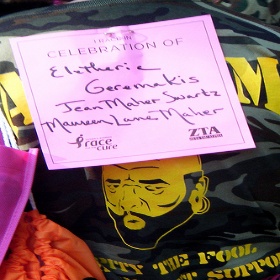 I RACE IN
CELEBRATION OF
Eleftheria
Geremakis
Jean Maher Swartz
Maureen Lane Maher
race
cure
ZTA
PITY THE FOOL
SUPPO